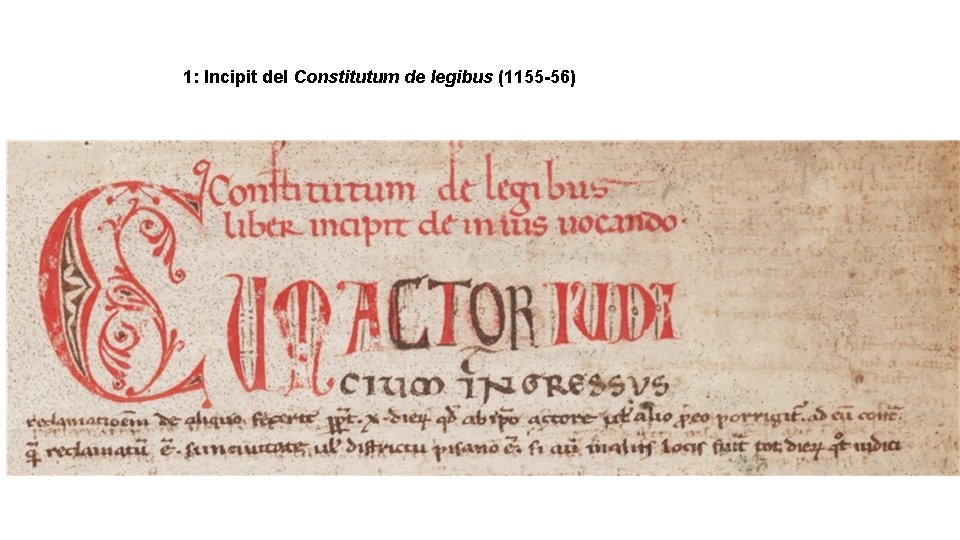 1: Incipit del Constitutum de legibus (1155-56)
Constitutum de legibus
liber incipit de in ius uocando.
CUM ACTOR IUDI
CIUM INGRESSUS
reclamationem de aliquo fecerit .x. dieꝝ qd̄ ab ip̄o actore ul̓ alio p̄ eo porrigit̄ ad eū
reclamatū ē. sun ciuitate ul̓ districtu pisano ē si aū in aliis locis fuit̄ tot dieꝝ iudici